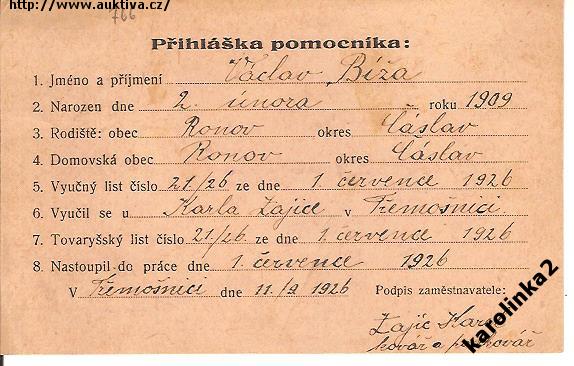 http://www.auktiva.cz/
766
Přihláška pomocníka:
1. Jméno a příjmení Václav Bíža
2. Narozen dne 2. února roku 1909
3. Rodiště: obec Ronov okres Čáslav
4. Domovská obec Ronov okres Čáslav
5. Vyučný list číslo 21/26 ze dne 1. července 1926
6. Vyučil se u Karla Zajíce v Třemošnici
7. Tovaryšský list číslo 21/26. ze dne 1. července 1926
8. Nastoupil do práce dne 1. července 1926
V Třemošnici dne 11./9 1926 Podpis zaměstnavatele:
Zajíc Karel
kovář a podkovář
karolinka2